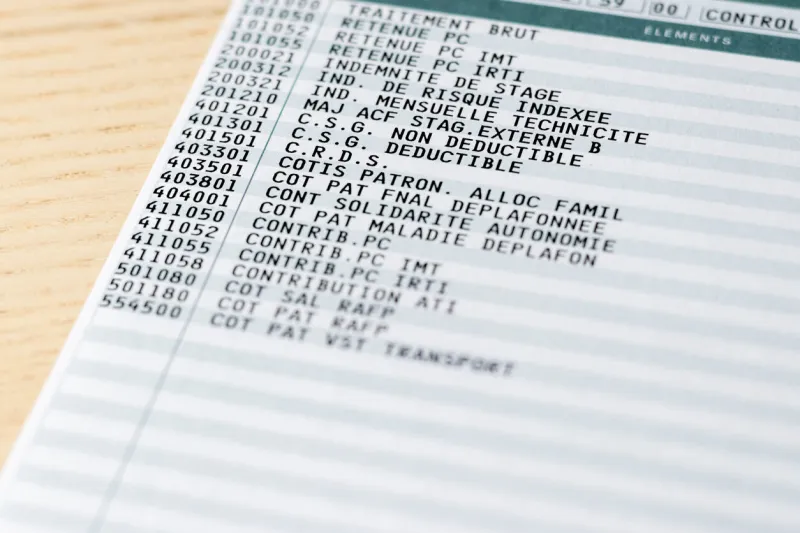 59 00 CONTROL
ÉLEMENTS
101000 TRAITEMENT BRUT
101050 RETENUE PC
101052 RETENUE PC IMT
101055 RETENUE PC IRTI
200021 INDEMNITE DE STAGE
200312 IND. DE RISQUE INDEXEE
200321 IND. MENSUELLE TECHNICITE
201210 MAJ ACF STAG.EXTERNE B
401201 C.S.G. NON DEDUCTIBLE
401301 C.S.G. DEDUCTIBLE
401501 C.R.D.S.
403301 COTIS PATRON. ALLOC FAMIL
403501 COT PAT FNAL DEPLAFONNEE
403801 CONT SOLIDARITE AUTONOMIE
404001 COT PAT MALADIE DEPLAFON
411050 CONTRIB.PC
411052 CONTRIB.PC IMT
411055 CONTRIB.PC IRTI
411058 CONTRIBUTION ATI
501080 COT SAL RAFP
501180 COT PAT RAFP
554500 COT PAT VST TRANSPORT